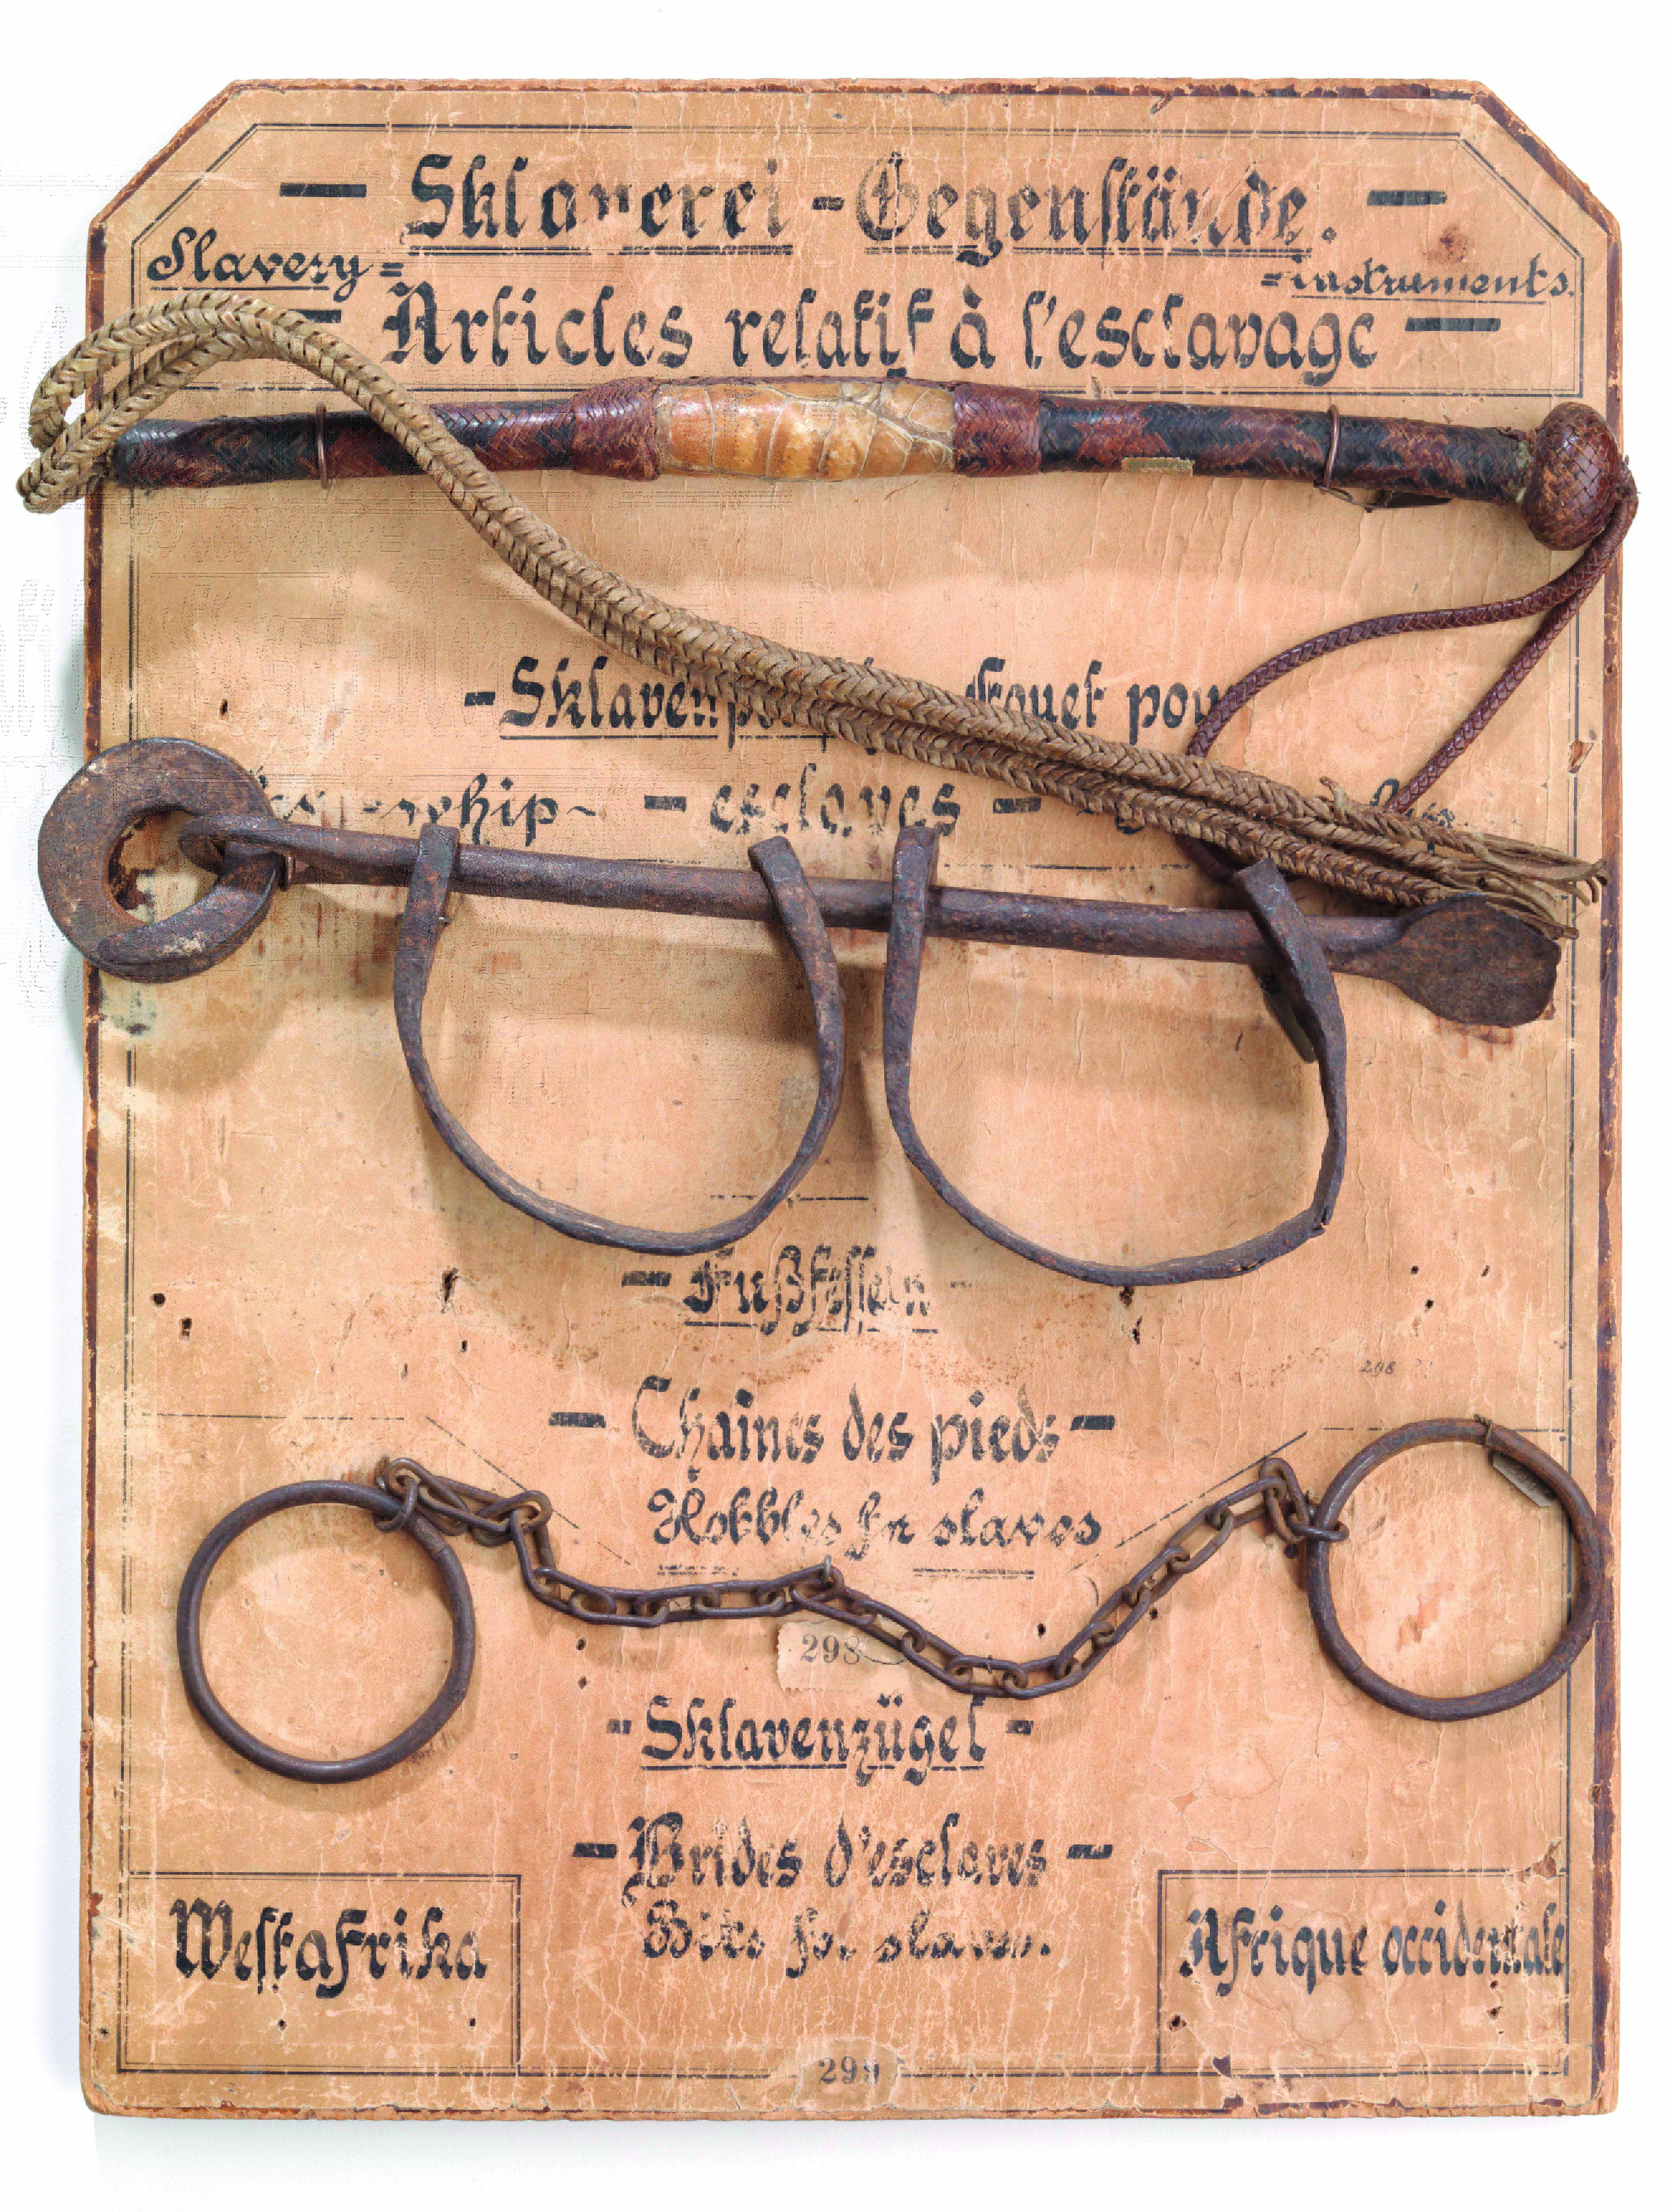 Sklaverei - Gegenstände.
Slavery = = instruments.
Articles relatif à l'esclavage
Fouet pour
whip - esclaves -
- Fußfesseln -
298
- Chaînes des pieds -
Hobbles for slaves
298
- Sklavenzügel -
- Brides d'esclaves -
Bits for slaves.
Westafrika
Afrique occidentale
299